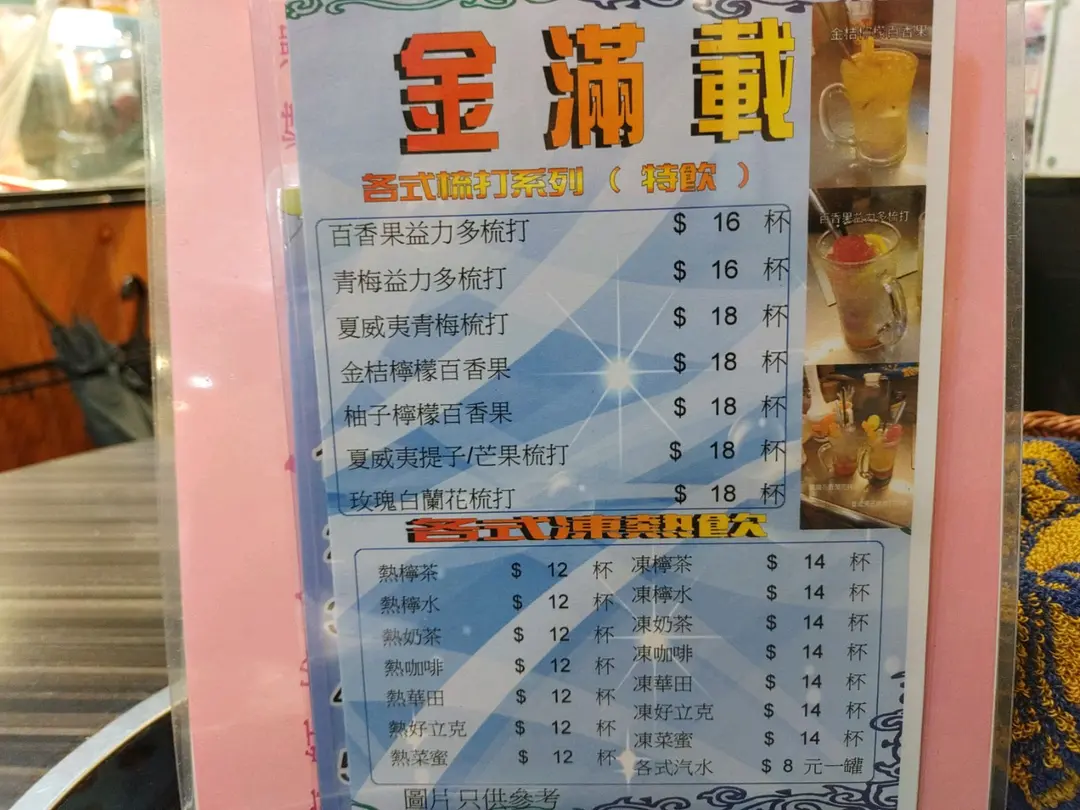 金滿載
各式梳打系列 ( 特飲 )
百香果益力多梳打 $ 16 杯
青梅益力多梳打 $ 16 杯
夏威夷青梅梳打 $ 18 杯
金桔檸檬百香果 $ 18 杯
柚子檸檬百香果 $ 18 杯
夏威夷提子/芒果梳打 $ 18 杯
玫瑰白蘭花梳打 $ 18 杯
金桔檸檬百香果
百香果益力多梳打
各式凍熱飲
熱檸茶 $ 12 杯 凍檸茶 $ 14 杯
熱檸水 $ 12 杯 凍檸水 $ 14 杯
熱奶茶 $ 12 杯 凍奶茶 $ 14 杯
熱咖啡 $ 12 杯 凍咖啡 $ 14 杯
熱華田 $ 12 杯 凍華田 $ 14 杯
熱好立克 $ 12 杯 凍好立克 $ 14 杯
熱菜蜜 $ 12 杯 凍菜蜜 $ 14 杯
各式汽水 $ 8 元一罐
圖片只供參考